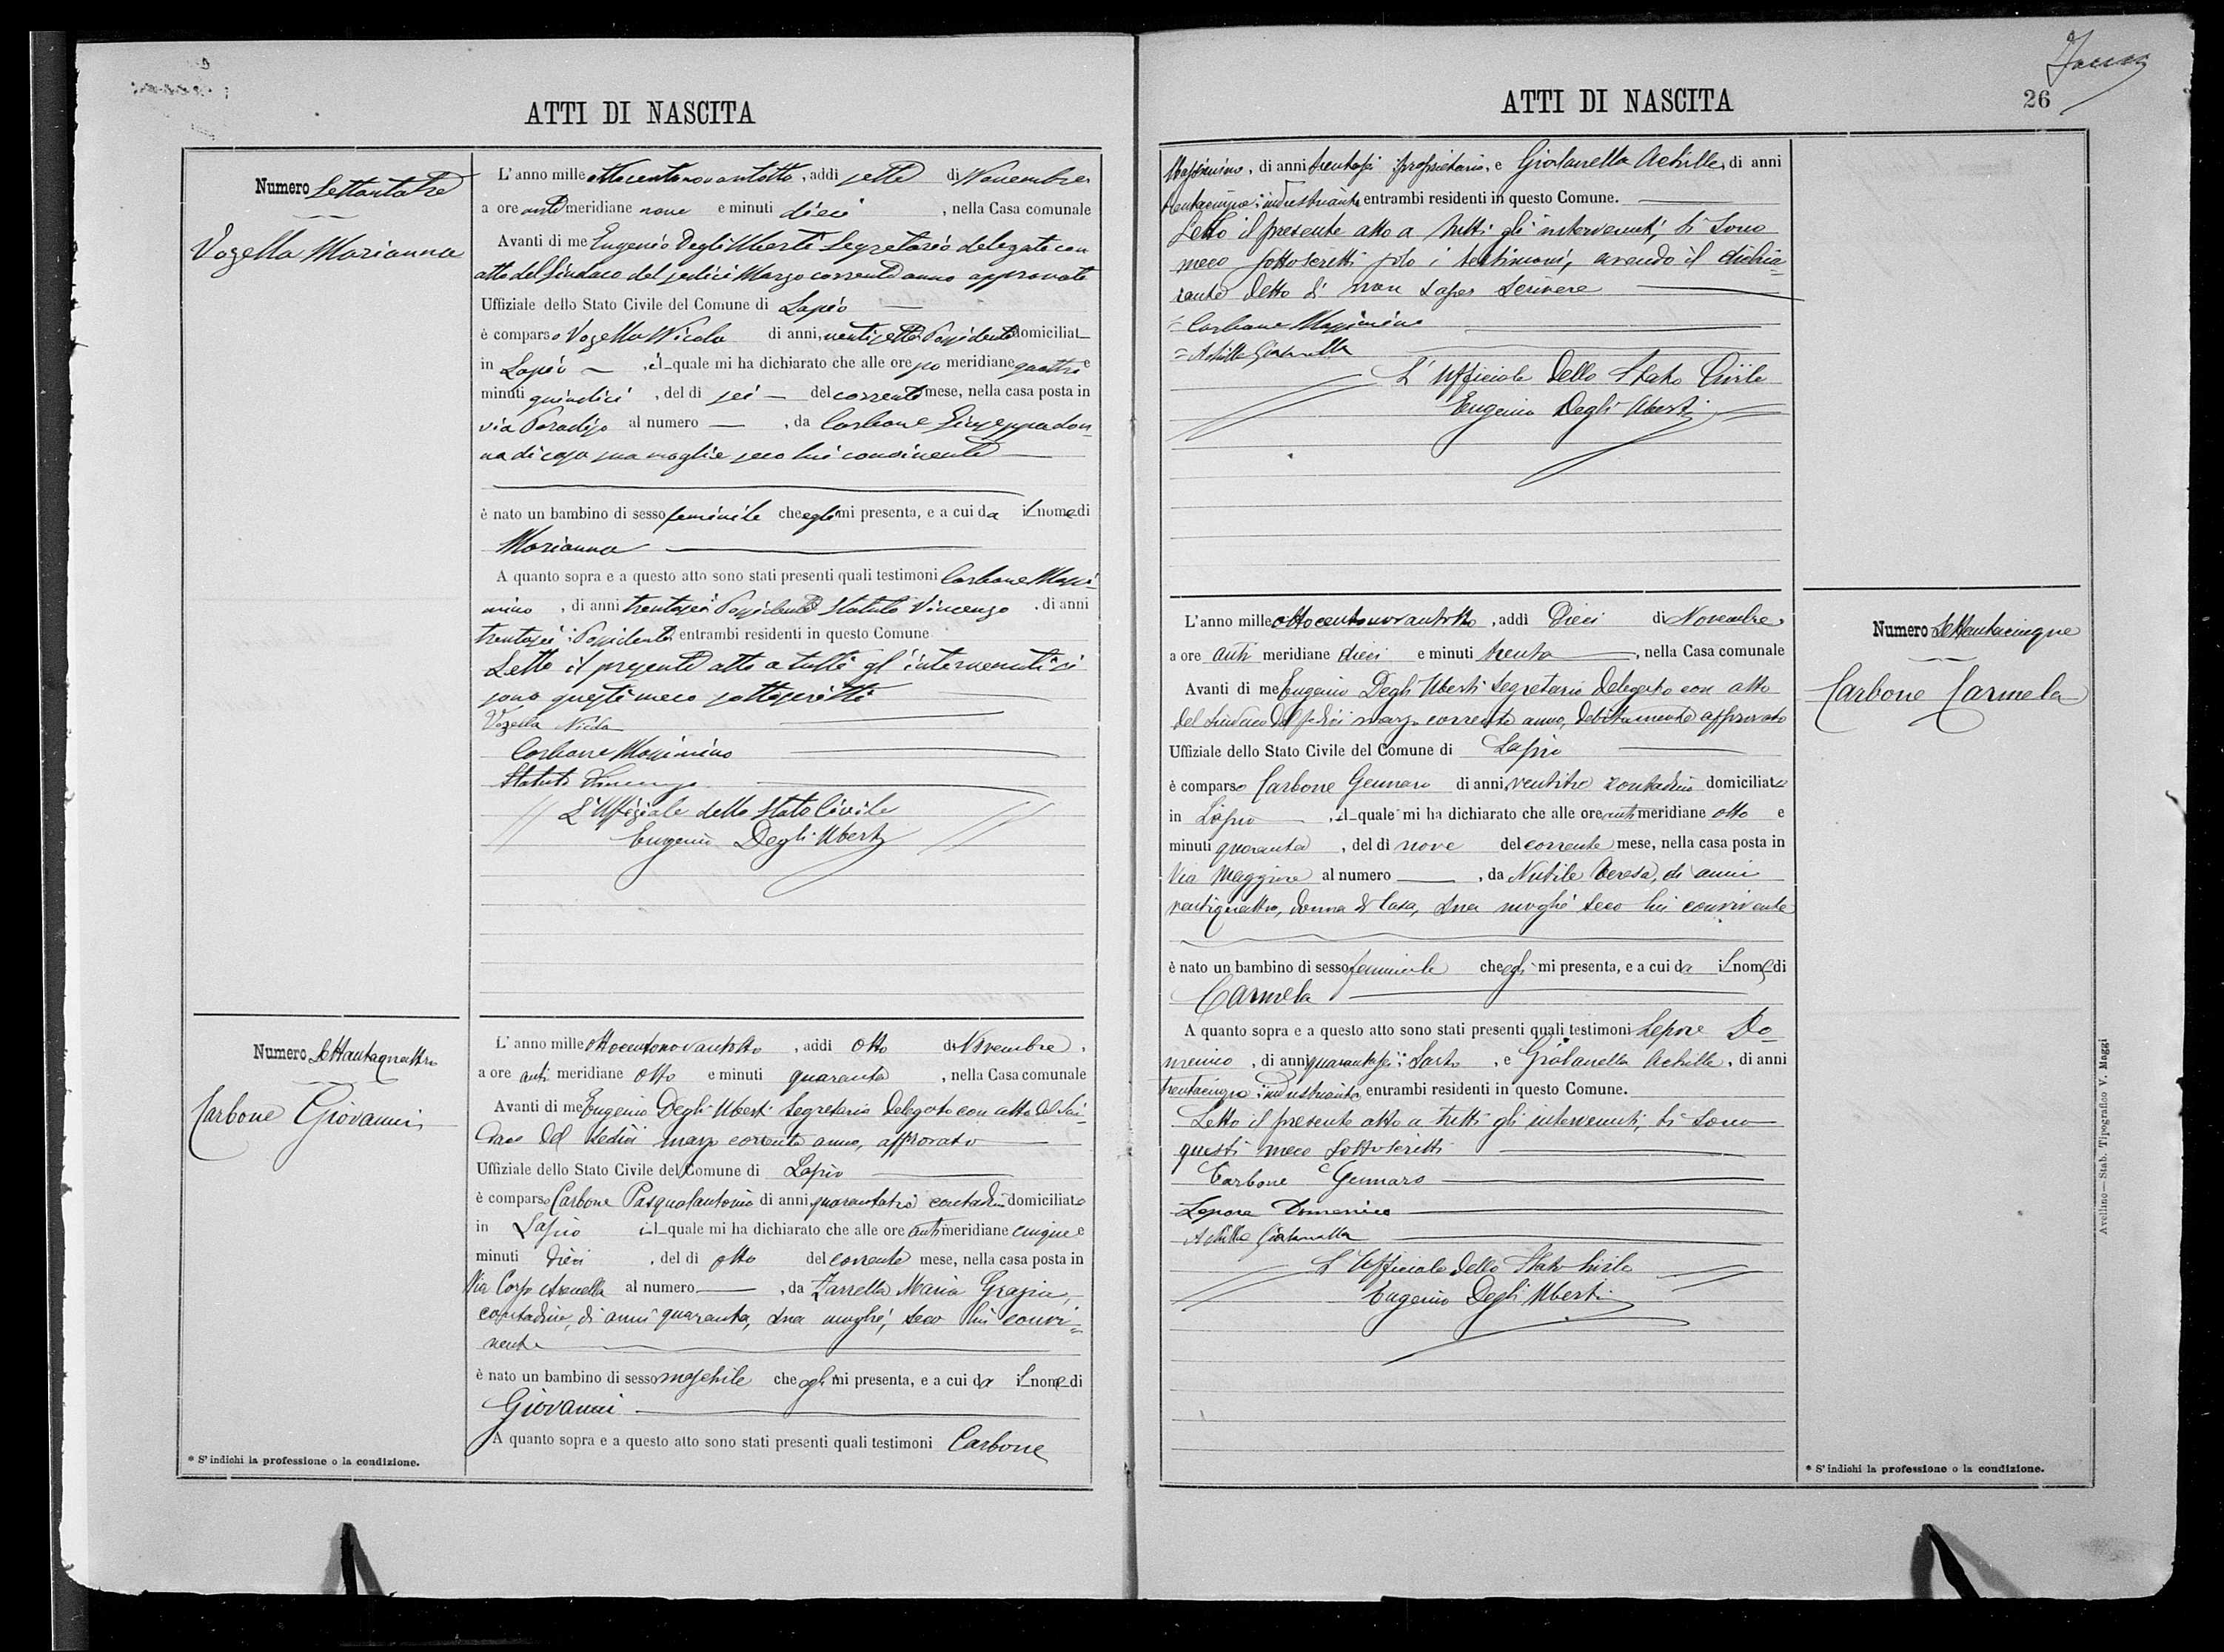 ATTI DI NASCITA
Numero Settantatre
Vozella Marianna
L'anno mille ottocentonovantotto, addì sette di Novembre
a ore anti meridiane nove e minuti dieci, nella Casa comunale
Avanti di me Eugenio Degli Uberti Segretario delegato con
atto del Sindaco del sedici Marzo corrente anno approvato
Uffiziale dello Stato Civile del Comune di Lapio
è comparso Vozella Nicola di anni ventisette Possidente domiciliat
in Lapio, il quale mi ha dichiarato che alle ore po meridiane quattro e
minuti quindici, del dì sei del corrente mese, nella casa posta in
via Paradiso al numero —, da Carbone Giuseppa don-
na di casa sua moglie seco lui convivente
è nato un bambino di sesso feminile che egli mi presenta, e a cui dà il nome di
Marianna
A quanto sopra e a questo atto sono stati presenti quali testimoni Carbone Massi-
mino, di anni trentasei Possidente Statuto Vincenzo, di anni
trentasei Possidente, entrambi residenti in questo Comune
Letto il presente atto a tutti gl'intervenuti si
sono questi meco sottoscritti
Vozella Nicola
Carbone Massimino
Statuto Vincenzo
L'Uffiziale dello Stato Civile
Eugenio Degli Uberti
Numero Settantaquattro
Carbone Giovanni
L'anno mille ottocentonovantotto, addì otto di Novembre,
a ore anti meridiane otto e minuti quaranta, nella Casa comunale
Avanti di me Eugenio Degli Uberti Segretario delegato con atto del Sin-
daco del sedici marzo corrente anno, approvato
Uffiziale dello Stato Civile del Comune di Lapio
è comparso Carbone Pasqualantonio di anni quarantatre contadino domiciliato
in Lapio il quale mi ha dichiarato che alle ore anti meridiane cinque e
minuti dieci, del dì otto del corrente mese, nella casa posta in
Via Corpo Arenella al numero —, da Zarrella Maria Grazia,
contadina, di anni quaranta, sua moglie, seco lui convi-
vente
è nato un bambino di sesso maschile che egli mi presenta, e a cui dà il nome di
Giovanni
A quanto sopra e a questo atto sono stati presenti quali testimoni Carbone
* S'indichi la professione o la condizione.
ATTI DI NASCITA
26
Massimino, di anni trentasei proprietario, e Giolanella Achille, di anni
trentacinque industriante, entrambi residenti in questo Comune.
Letto il presente atto a tutti gli intervenuti, si sono
meco sottoscritti solo i testimoni, avendo il dichia-
rante detto di non saper scrivere
Carbone Massimino
Achille Giolanella
L'Ufficiale dello Stato Civile
Eugenio Degli Uberti
Numero Settantacinque
Carbone Carmela
L'anno mille ottocentonovantotto, addì Dieci di Novembre,
a ore anti meridiane dieci e minuti trenta, nella Casa comunale
Avanti di me Eugenio Degli Uberti Segretario delegato con atto
del Sindaco del sedici marzo corrente anno, debitamente approvato
Uffiziale dello Stato Civile del Comune di Lapio
è comparso Carbone Gennaro di anni ventitre contadino domiciliato
in Lapio, il quale mi ha dichiarato che alle ore anti meridiane otto e
minuti quaranta, del dì nove del corrente mese, nella casa posta in
Via Maggiore al numero —, da Nubile Teresa, di anni
ventiquattro, donna di Casa, sua moglie seco lui convivente
è nato un bambino di sesso feminile che egli mi presenta, e a cui dà il nome di
Carmela
A quanto sopra e a questo atto sono stati presenti quali testimoni Lepore Do-
menico, di anni quarantasei Sarto, e Giolanella Achille, di anni
trentacinque industriante, entrambi residenti in questo Comune.
Letto il presente atto a tutti gli intervenuti, si sono
questi meco sottoscritti
Carbone Gennaro
Lepore Domenico
Achille Giolanella
L'Ufficiale dello Stato Civile
Eugenio Degli Uberti
* S'indichi la professione o la condizione.
Avellino — Stab. Tipografico V. Maggi